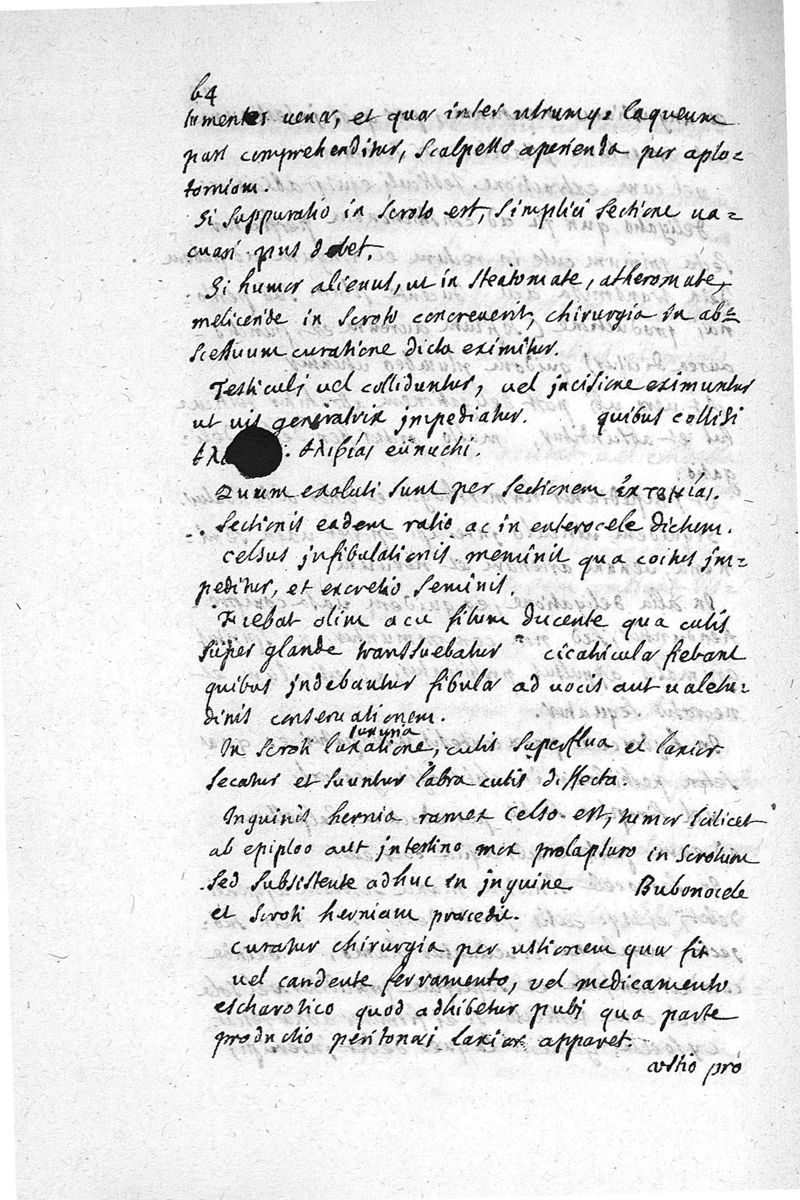 64
tumentes venæ, et quæ inter utrumq. laqueum
pars comprehenditur, scalpello aperienda per aplo=
tomiam.
Si suppuratio in scroto est, simplici sectione va=
cuari pus debet.
Si humor alienus, ut in steatomate, atheromate,
meliceride in scroto concreverit, chirurgia in ab=
scessuum curatione dicta eximitur.
Testiculi vel colliduntur, vel jncisione eximuntur
ut vis generatrix jmpediatur. quibus collisi
θλα θλιβίαι eunuchi.
Quum exoluti sunt per sectionem ἐκτομίαι.
Sectionis eadem ratio ac in enterocele dicham.
Celsus jnfibulationis meminit qua coitus jm=
peditur, et excretio seminis.
Fiebat olim acu filum ducente qua cutis
super glande transsuebatur cicatricula fiebant
quibus jndebantur fibulæ ad vocis aut valetu=
dinis conservationem.
In scroti laxatione, cutis superflua et laxior
secatur et suuntur labra cutis dissecta.
Inguinis hernia ramex Celso est, tumor scilicet
ab epiploo aut jntestino mox prolapsuro in scrotum
sed subsistente adhuc in jnguine Bubonocele
et scroti herniam præcedit.
Curatur chirurgia per ustionem quæ fit
vel candente ferramento, vel medicamento
escharotico quod adhibetur pubi qua parte
productio peritonæi laxior apparet.
ustio pro